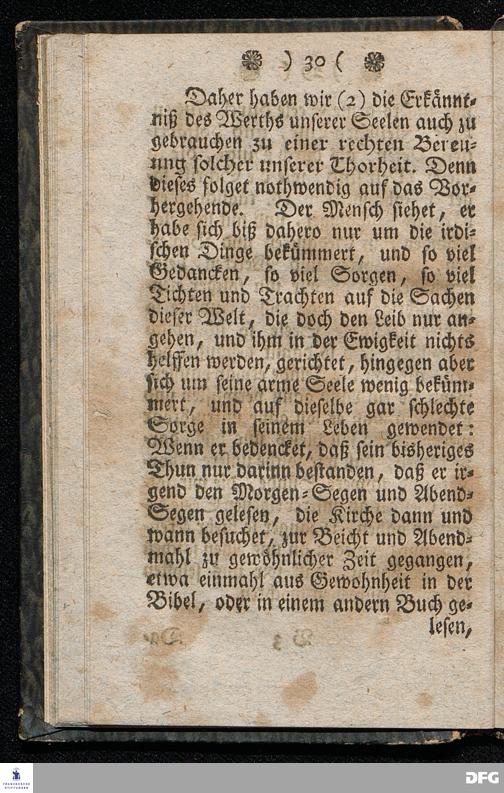 ) 30 (
Daher haben wir (2) die Erkännt-
niß des Werths unserer Seelen auch zu
gebrauchen zu einer rechten Bereu-
ung solcher unserer Thorheit. Denn
dieses folget nothwendig auf das Vor-
hergehende. Der Mensch siehet, er
habe sich biß dahero nur um die irdi-
schen Dinge bekümmert, und so viel
Gedancken, so viel Sorgen, so viel
Tichten und Trachten auf die Sachen
dieser Welt, die doch den Leib nur an-
gehen, und ihm in der Ewigkeit nichts
helffen werden, gerichtet, hingegen aber
sich um seine arme Seele wenig beküm-
mert, und auf dieselbe gar schlechte
Sorge in seinem Leben gewendet:
Wenn er bedencket, daß sein bisheriges
Thun nur darinn bestanden, daß er ir-
gend den Morgen-Segen und Abend-
Segen gelesen, die Kirche dann und
wann besuchet, zur Beicht und Abend-
mahl zu gewöhnlicher Zeit gegangen,
etwa einmahl aus Gewohnheit in der
Bibel, oder in einem andern Buch ge-
lesen,
FRANCKESCHE
STIFTUNGEN
DFG